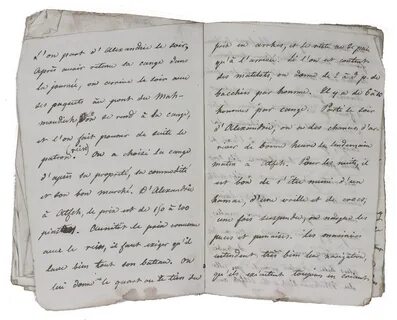 L'on part d'Alexandrie le soir,
Après avoir retenu sa cange dans
la journée, on arrive le soir avec
ses paquets au pont du Mah-
moudieh, on se rend à la cange,
et l'on fait prévenir de suite le
patron. (reïs) On a choisi sa cange
d'après sa propreté, sa commodité
et son bon marché. D'Alexandrie
à Atfeh, le prix est de 150 à 200
piastres. Ensuite de prix convenu
avec le reïs, il faut exiger qu'il
lave bien tout son bateau. On
lui donne le quart ou le tiers du
prix en arrhes, et le reste ne se paie
qu'à l'arrivée. Si l'on est content
des matelots, on donne de 1 à 2 p. de
bacchis par homme. Il y a de 8 à 12
hommes par cange. Parti le soir
d'Alexandrie, on a des chances d'ar-
river de bonne heure le lendemain
matin à Atfeh. Pour les nuits, il
est bon de s'être muni d'un
hamac, d'une vrille et de crocs;
une fois suspendu, on nargue les
puces et punaises. Les musiciens
entendent très bien la navigation
qu'ils exécutent toujours en courant.